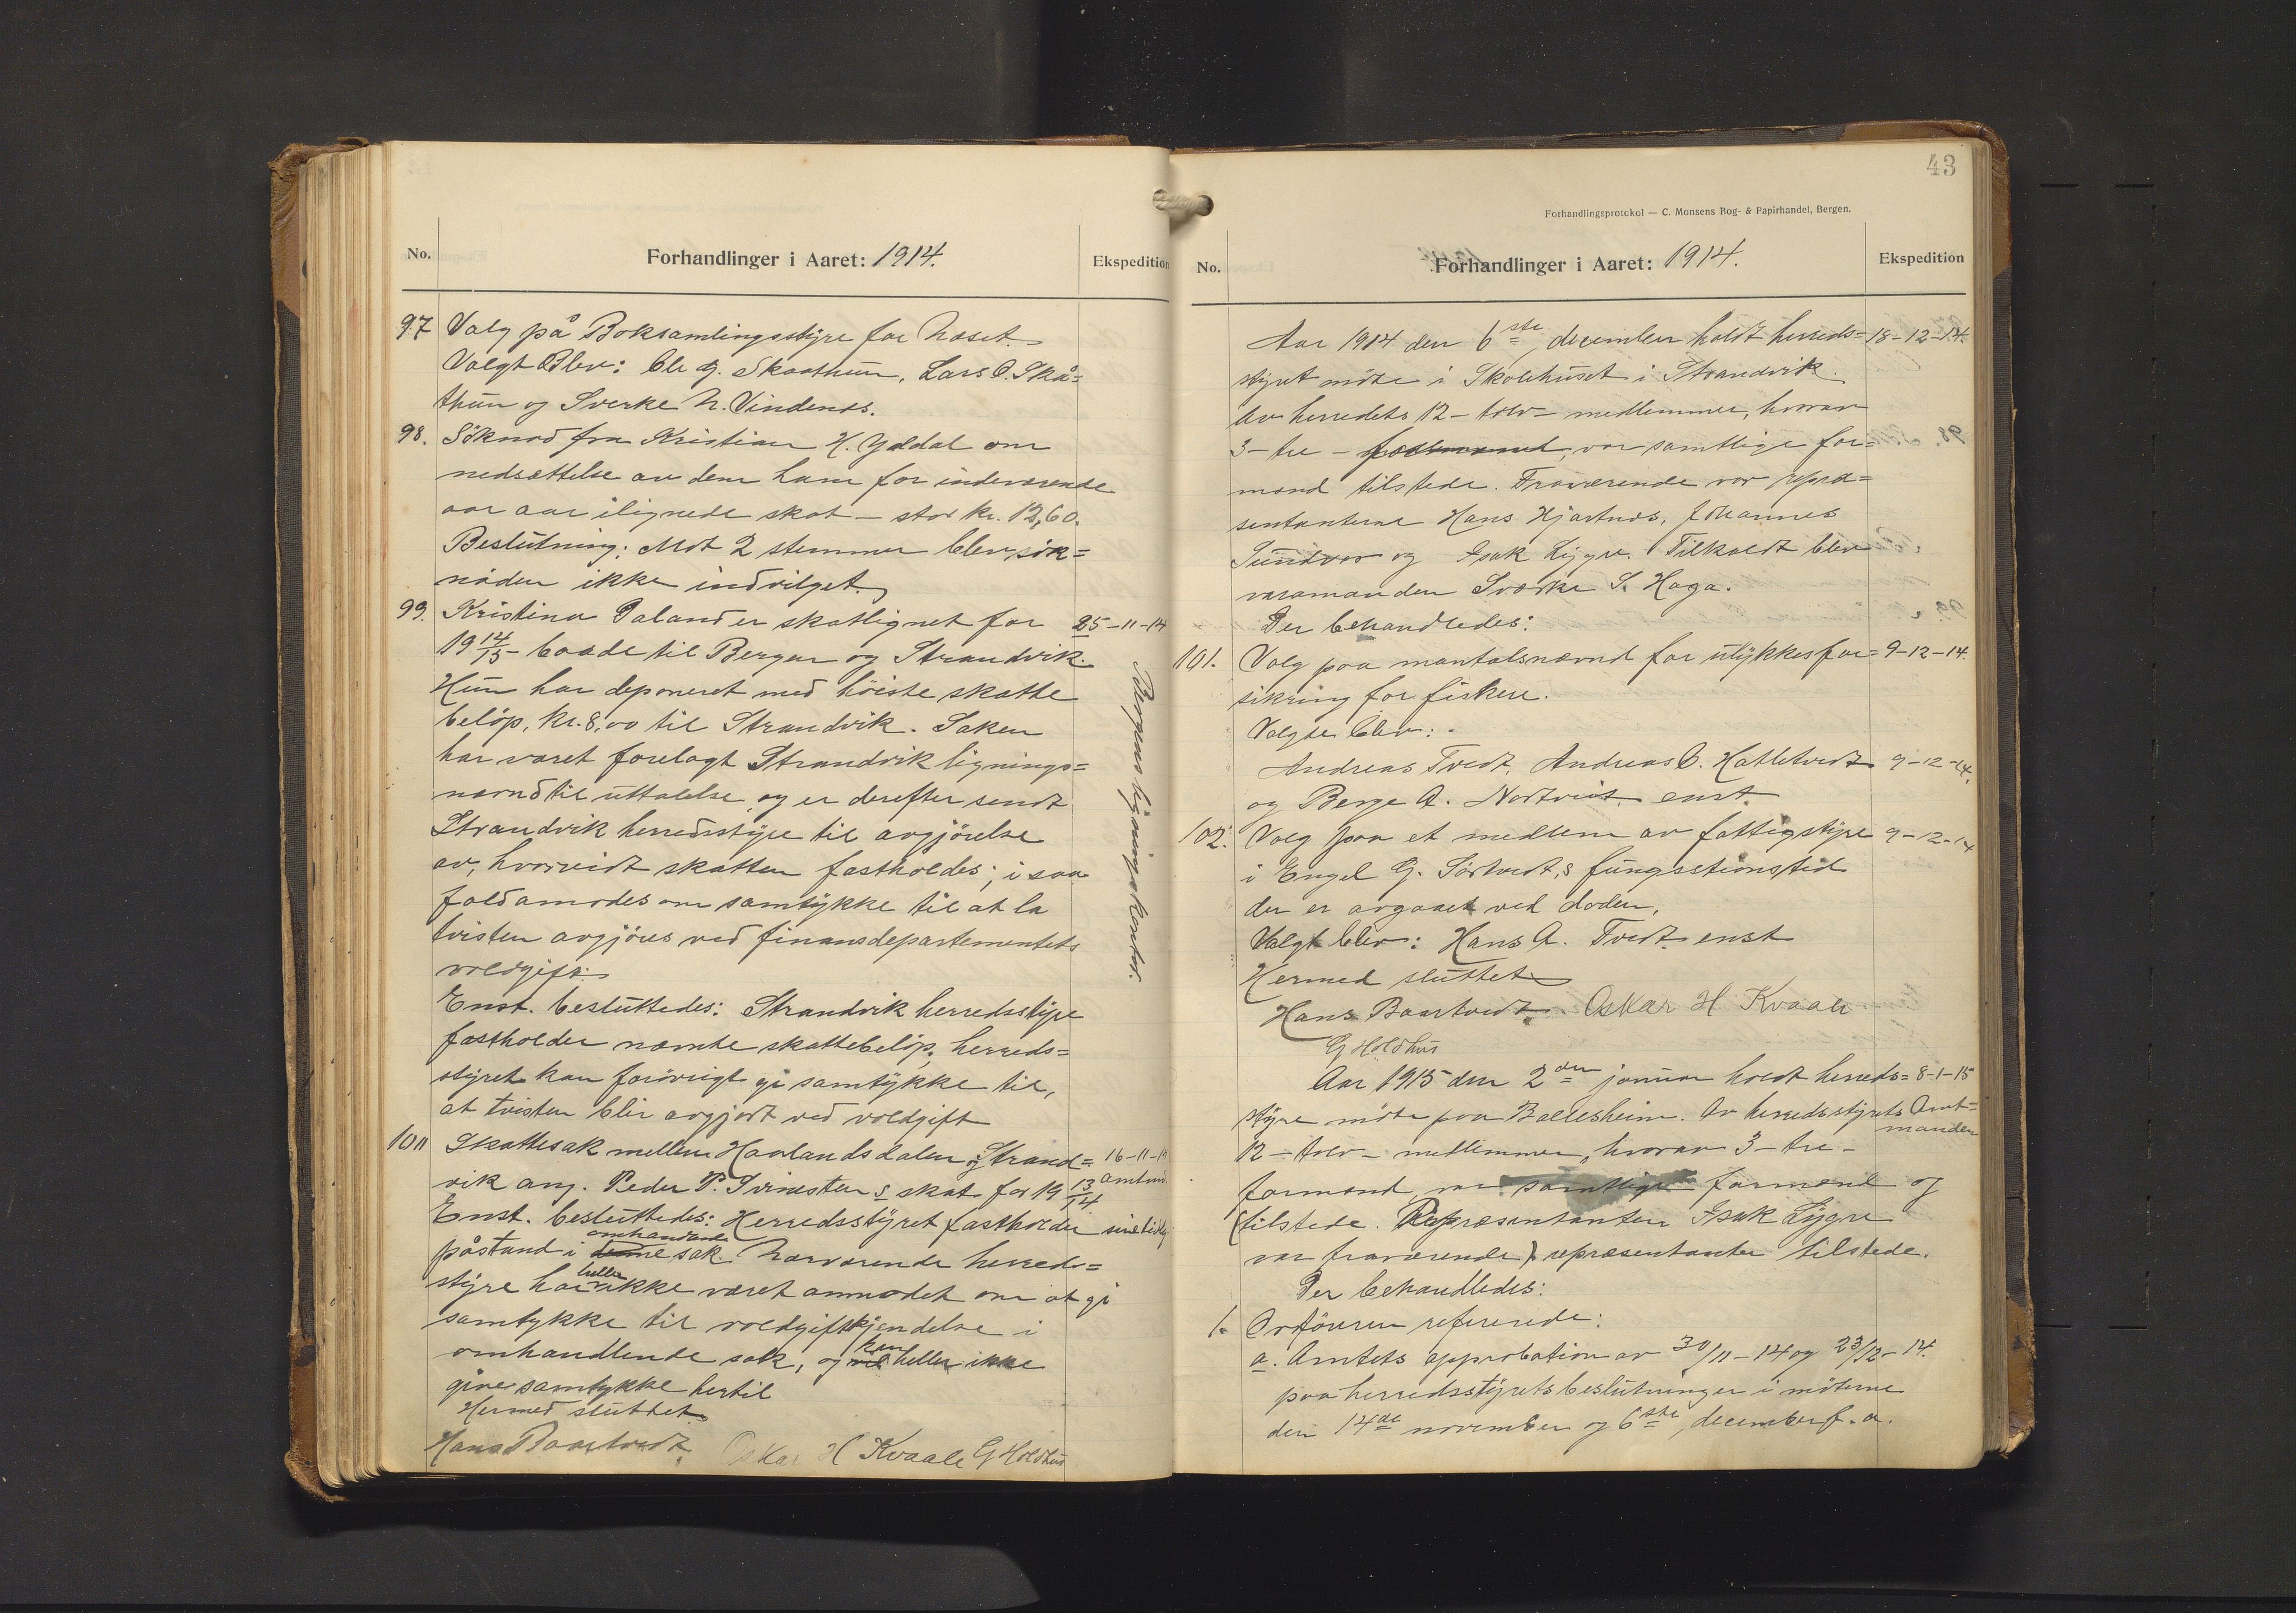 No.
Forhandlinger i Aaret: 1914.
Ekspedition
97 Valg på Boksamlingsstyre for Næset.
Valgt Blev: Ole G. Skaathun, Lars O. Skå=
thun og Sverke N. Vindenes.
98. Söknad fra Kristian H. Yddal om
nedsættelse av den ham for indeværende
aar aar ilignede skat – stor kr. 12,60.
Beslutning: Mot 2 stemmer blev søk=
naden ikke indvilget.
99. Kristina Daland er skatlignet for 25-11-14
19 14/15 baade til Bergen og Strandvik.
Hun har deponeret med höiste skatte
belöp, kr. 8,00 til Strandvik. Saken
har været forelagt Strandvik lignings=
nævnd til uttalelse og er derefter sendt
Strandvik herredsstyre til avgjörelse
av, hvorvidt skatten fastholdes; i saa
fald anmodes om samtykke til at la
tvisten avgjöres ved finansdepartementets
voldgift.
Bergens ligningskontor.
Enst. besluttedes: Strandvik herredsstyre
fastholder nævnte skattebelöp; herreds=
styret kan forövrigt gi samtykke til,
at tvisten blir avgjort ved voldgift
100 Skattesak mellem Haalandsdalen og Strand= 16-11-14
vik ang. Peder P. skat for 19 13/14 amtmd.
Enst. besluttedes: Herredsstyret fastholder sin tidlg
påstand i omhandlende sak. Nærværende herreds=
styre har heller ikke været anmodet om at gi
samtykke til voldgiftskjendelse i
omhandlende sak, og kan heller ikke
give samtykke hertil
Hermed sluttet
Hans Baartvedt. Oskar H Kvaale G Holdhus
43
Forhandlingsprotokol — C. Monsens Bog- & Papirhandel, Bergen.
No.
Forhandlinger i Aaret: 1914.
Ekspedition
Aar 1914 den 6ste december holdt herreds= 18-12-14.
styret möte i Skolehuset i Strandvik.
Av herredets 12 – tolv – medlemmer, hvorav
3 – tre – formænd, var samtlige for=
mænd tilstede. Fraværende var repræ=
sentanterne Hans Hjartnæs, Johannes
Sundvor og Isak Lygre. Tilkaldt blev
varamanden Sværke S. Haga.
Der behandledes:
101. Valg paa mantalsnævnd for ulykkesfor= 9-12-14.
sikring for fiskere.
Valgte blev:
Andreas Tvedt, Andreas O. Hatletvedt 9-12-14.
og Berge A. Nordtveit. enst.
102. Valg paa et medlem av fattigstyre 9-12-14
i Engel G. Sörtvedt,s fungsstionstid
der er avgaaet ved döden.
Valgt blev: Hans A. Tvedt. enst
Hermed sluttet
Hans Baartvedt. Oskar H Kvaale
G Holdhus
Aar 1915 den 2den januar holdt herreds= 8-1-15
styre möte paa Ballesheim. Av herredsstyrets Amt=
manden
12 – tolv – medlemmer, hvorav 3 – tre –
formænd, var samtlige formænd og
(tilstede. Repræsentanten Isak Lygre
var fraværende) repræsentanter tilstede.
Der behandledes:
1. Ordföreren refererede:
a. Amtets approbation av 30/11 – 14 og 23/12 – 14.
paa herredsstyrets beslutninger i möterne
den 14de november og 6ste december f. a.